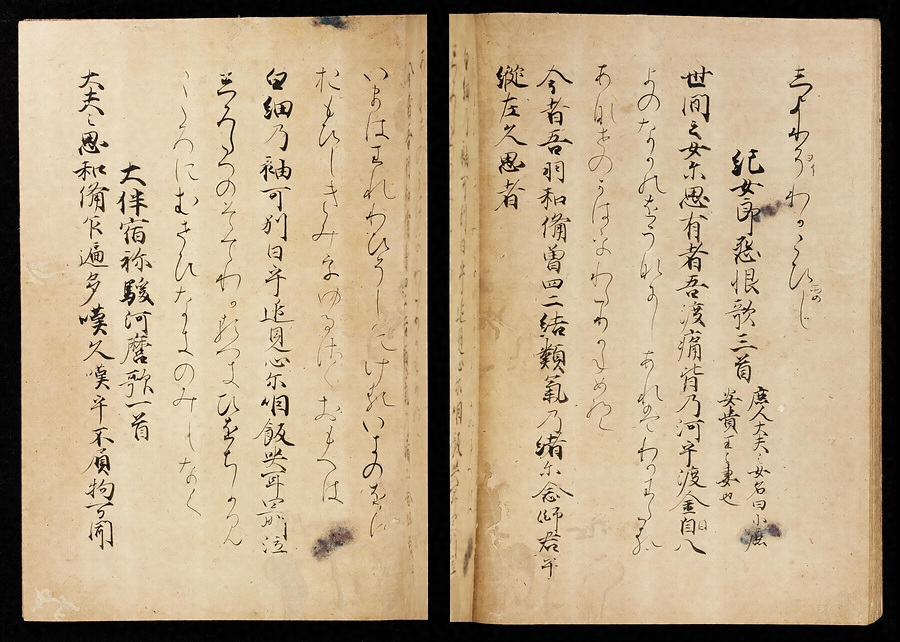 紀女郎怨恨歌三首 鹿人大夫之女名曰小鹿
安貴王之妻也
世間之女尓思有者吾渡痛背乃河乎渡金目八
よのなかのをうなにしあれはわかわたる
あなせのかはをわたりかねめや
今者吾羽和備曽四二結類氣乃緒尓念師君乎
縦左久思者
いまはわれわひそしにけるいきのをに
おもひしきみをゆるさくおもへは
白細乃袖可別日乎追見心尓咽飯哭耳四所泣
しろたへのそてわかるへきひをちかみ
こゝろにむせひなきのみしなく
大伴宿祢駿河麿歌一首
大夫之思和備乍遍多嘆久嘆乎不負物可聞